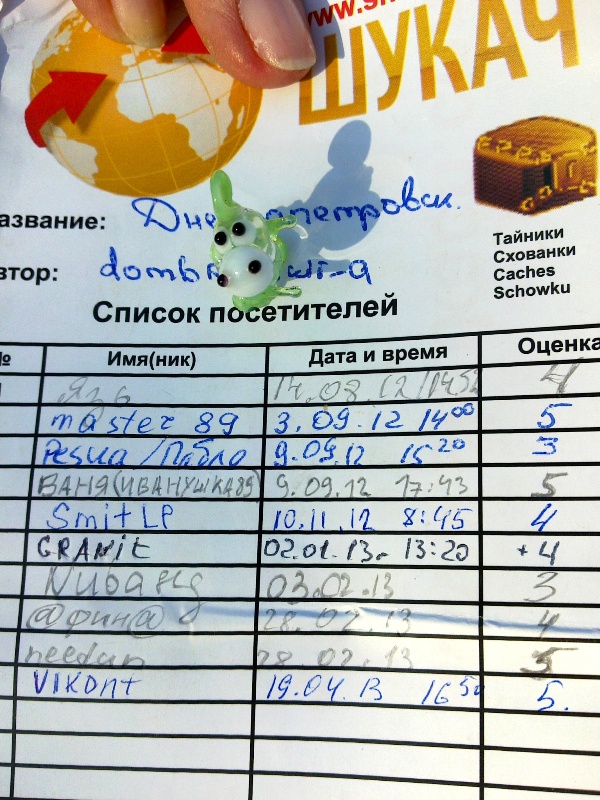 ШУКАЧ
Тайники
Схованки
Caches
Schowku
Список посетителей
№ Имя(ник) Дата и время Оценка
Язь 14.08.12 4
master 89 3.09.12 14⁰⁰ 5
9.09.12 15²⁰ 3
ВАНЯ(ИВАНУШКА89) 9.09.12 17:43 5
SmitLP 10.11.12 8:45 4
GRANit 02.01.13. 13:20 +4
03.02.13 3
@фин@ 28.02.13 4
needan 28.02.13 5
VIKONT 19.04.13 16⁵⁰ 5.